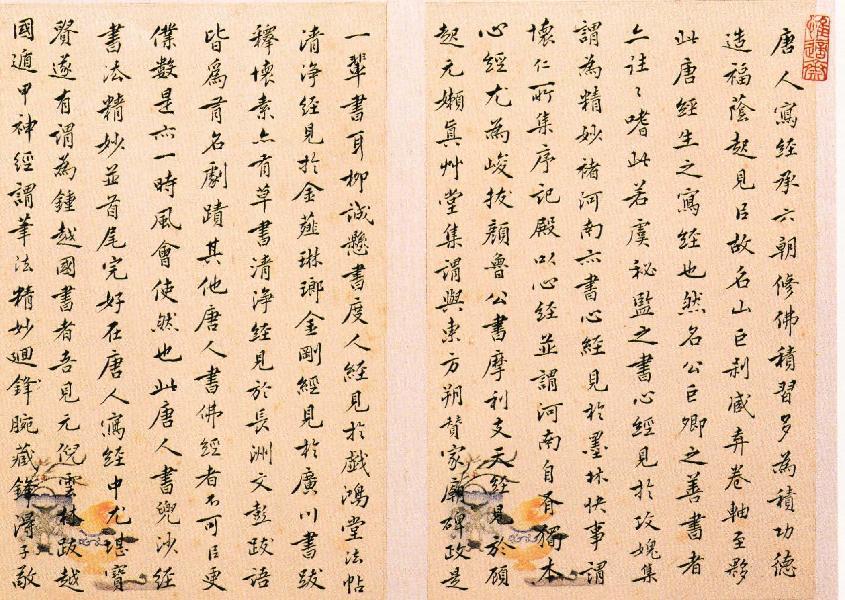 唐人寫經承六朝修佛積習多為積功德
造福蔭起見㠯故名山巨刹咸弆卷軸至夥
此唐經生之寫經也然名公巨卿之善書者
亦往〻嗜此若虞秘監之書心經見於攻媿集
謂為精妙褚河南亦書心經見於墨林快事謂
懷仁所集序記殿以心經並謂河南自有獨本
心經尤為峻拔顏魯公書摩利支天經見於顧
起元嬾真艸堂集謂與東方朔贊家廟碑政是
一輩書耳柳誠懸書度人經見於戲鴻堂法帖
清淨經見於金薤琳瑯金剛經見於廣川書跋
釋懷素亦有草書清淨經見於長洲文彭跋語
皆爲有名劇蹟其他唐人書佛經者不可㠯更
僕數是亦一時風會使然也此唐人書兜沙經
書法精妙並首尾完好在唐人寫經中尤堪寶
賢遂有謂為鍾越國書者吾見元倪雲林跋越
國遁甲神經謂筆法精妙廻鋒腕藏鋒得子敬